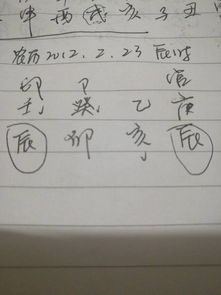 申 酉 戌 亥 子 丑
农历2012.2.23 辰时
印 卩 官
壬 癸 乙 庚
辰 卯 亥 辰